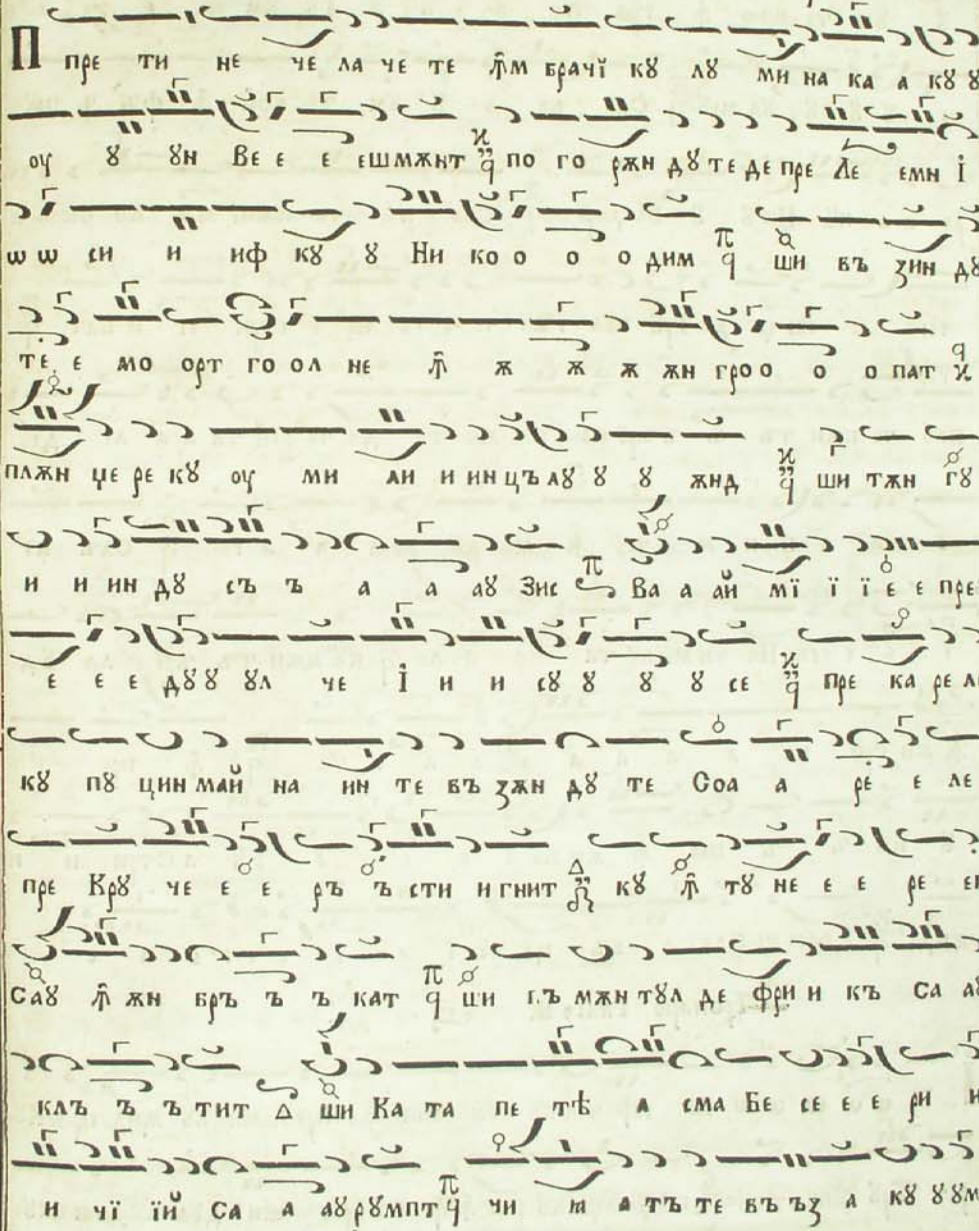 П пре ти не че ла че те ꙟ҆м брачї кꙋ лꙋ ми на ка а кꙋ ꙋ
оу ꙋ ꙋн Ве е е ешмѫнт по го рѫн дꙋ те де пре Ле емн і
ѡ ѡ си и иф кꙋ ꙋ Ни ко о о о дим ши въ ꙁин дꙋ
те е мо орт го ол не ꙟ҆ ѫ ѫ ѫ ѫн гро о о о пат
плѫн џе ре кꙋ оу ми ли и ин цъ лꙋ ꙋ ꙋ ѫнд ши тѫн гꙋ
и и ин дꙋ съ ъ а а аꙋ Зис Ва а ай мї ї ї е е пре
е е е дꙋ ꙋ ꙋл че І и и сꙋ ꙋ ꙋ ꙋ се пре ка ре
кꙋ пꙋ цин май на ин те въ ꙁѫн дꙋ те Соа а ре е ле
пре Крꙋ че е е ръ ъ сти и гнит кꙋ ꙟ҆ тꙋ не е е ре
Саꙋ ꙟ҆ ѫн бръ ъ ъ кат ши пъ мѫн тꙋл де фри и къ Са аꙋ
клъ ъ ъ тит ши Ка та пе тѣ а сма Бе се е е ри и
и чї їй Са а аꙋ рꙋмпт чи ꙗ а тъ те въ ъꙁ а кꙋ ꙋ ꙋм